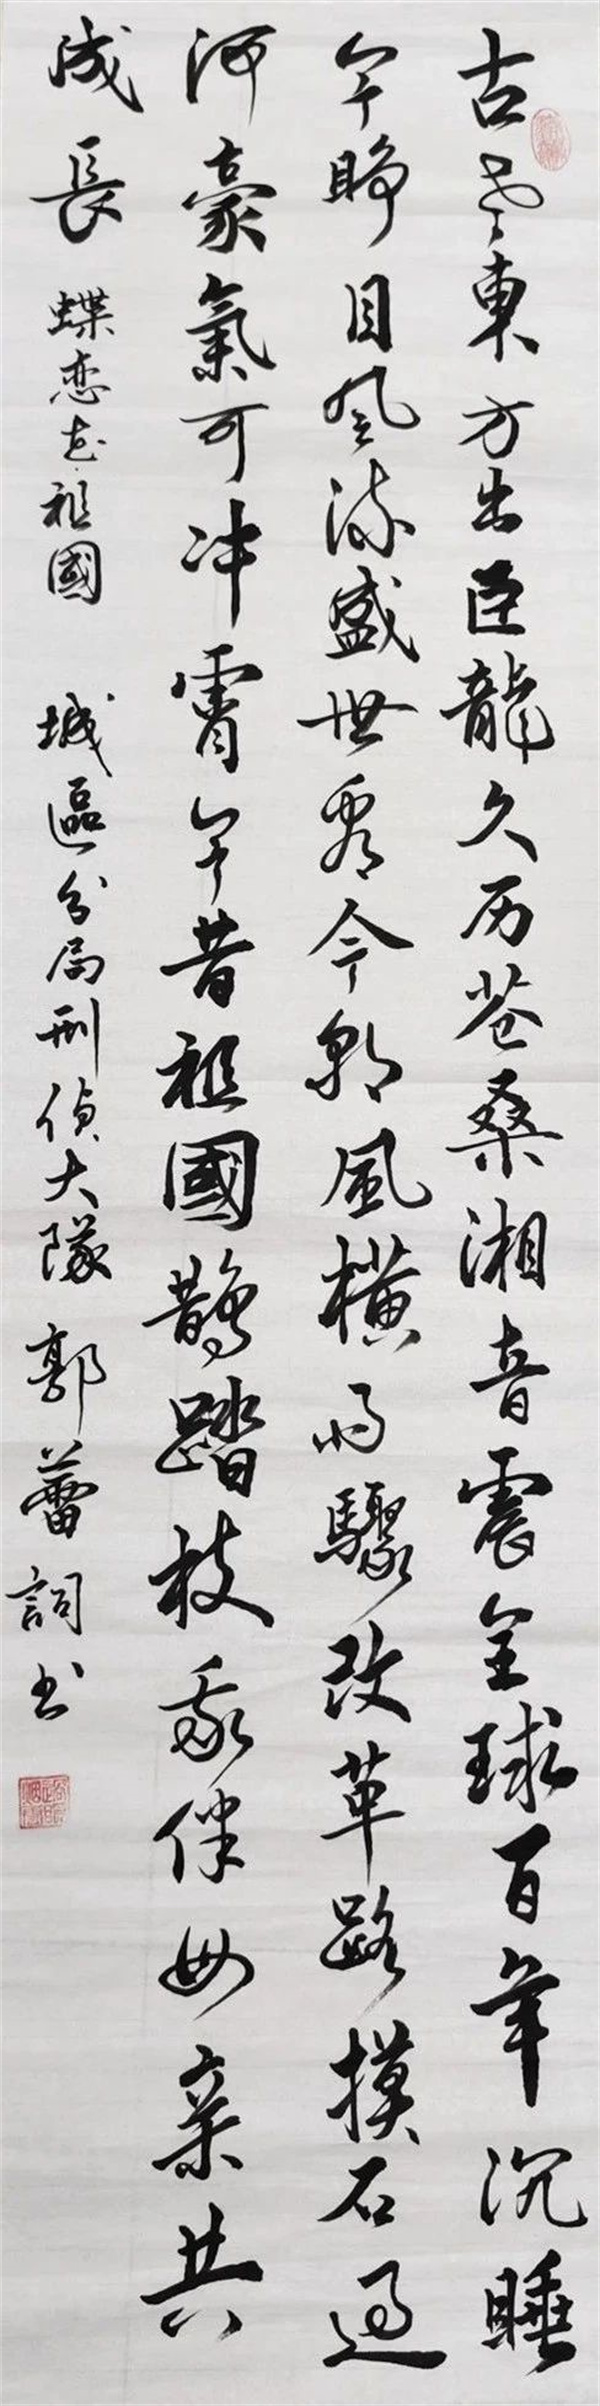 古老東方出臣龍久历苍桑湘音震全球百年沉睡
今睁目风流盛世看今朝風横雨驟改革路摸石過
河豪氣可冲霄今昔祖國鹊踏枝我伴母亲共
成長 蝶恋花·祖國 城區分局刑偵大隊 郭蕾詞书